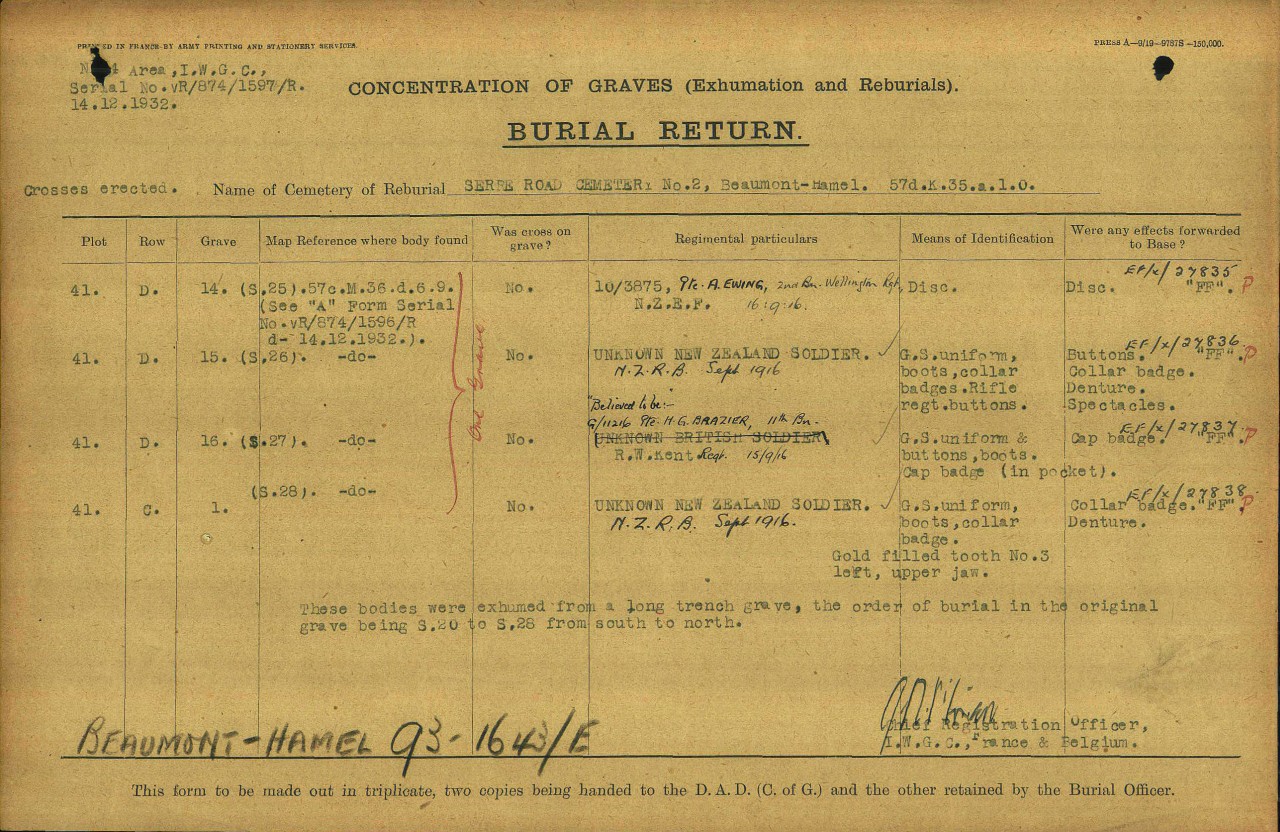 PRINTED IN FRANCE BY ARMY PRINTING AND STATIONERY SERVICES.
PRESS A—9/19—9787S—150,000.
Area, I.W.G.C.,
Serial No. vR/874/1597/R.
14.12.1932.
CONCENTRATION OF GRAVES (Exhumation and Reburials).
BURIAL RETURN.
Crosses erected. Name of Cemetery of Reburial SERRE ROAD CEMETERY No.2, Beaumont-Hamel. 57d.K.35.a.1.0.
Plot Row Grave Map Reference where body found Was cross on grave? Regimental particulars Means of Identification Were any effects forwarded to Base?
EF/x/27835
41. D. 14. (S.25).57c.M.36.d.6.9. No. 10/3875, Pte. A. EWING, 2nd Bn. Wellington Rgt, Disc. Disc. "FF". P
(See "A" Form Serial N.Z.E.F. 16.9.16.
No. vR/874/1596/R
d- 14.12.1932.).
One Grave
EF/x/27836
41. D. 15. (S.26). -do- No. UNKNOWN NEW ZEALAND SOLDIER. G.S.uniform, Buttons. "FF". P
N.Z.R.B. Sept 1916 boots,collar Collar badge.
badges.Rifle Denture.
regt.buttons. Spectacles.
"Believed to be:-
G/11216 Pte. H.G. BRAZIER, 11th Bn.
EF/x/27837
41. D. 16. (S.27). -do- No. UNKNOWN BRITISH SOLDIER G.S.uniform & Cap badge. "FF". P
R.W.Kent Regt. 15/9/16 buttons,boots.
Cap badge (in pocket).
(S.28). -do-
EF/x/27838
41. C. 1. No. UNKNOWN NEW ZEALAND SOLDIER. G.S.uniform, Collar badge. "FF". P
N.Z.R.B. Sept 1916. boots,collar Denture.
badge.
Gold filled tooth No.3
left, upper jaw.
These bodies were exhumed from a long trench grave, the order of burial in the original
grave being S.20 to S.28 from south to north.
Chief Registration Officer,
I.W.G.C., France & Belgium.
BEAUMONT-HAMEL 93-1643/E
This form to be made out in triplicate, two copies being handed to the D.A.D. (C. of G.) and the other retained by the Burial Officer.